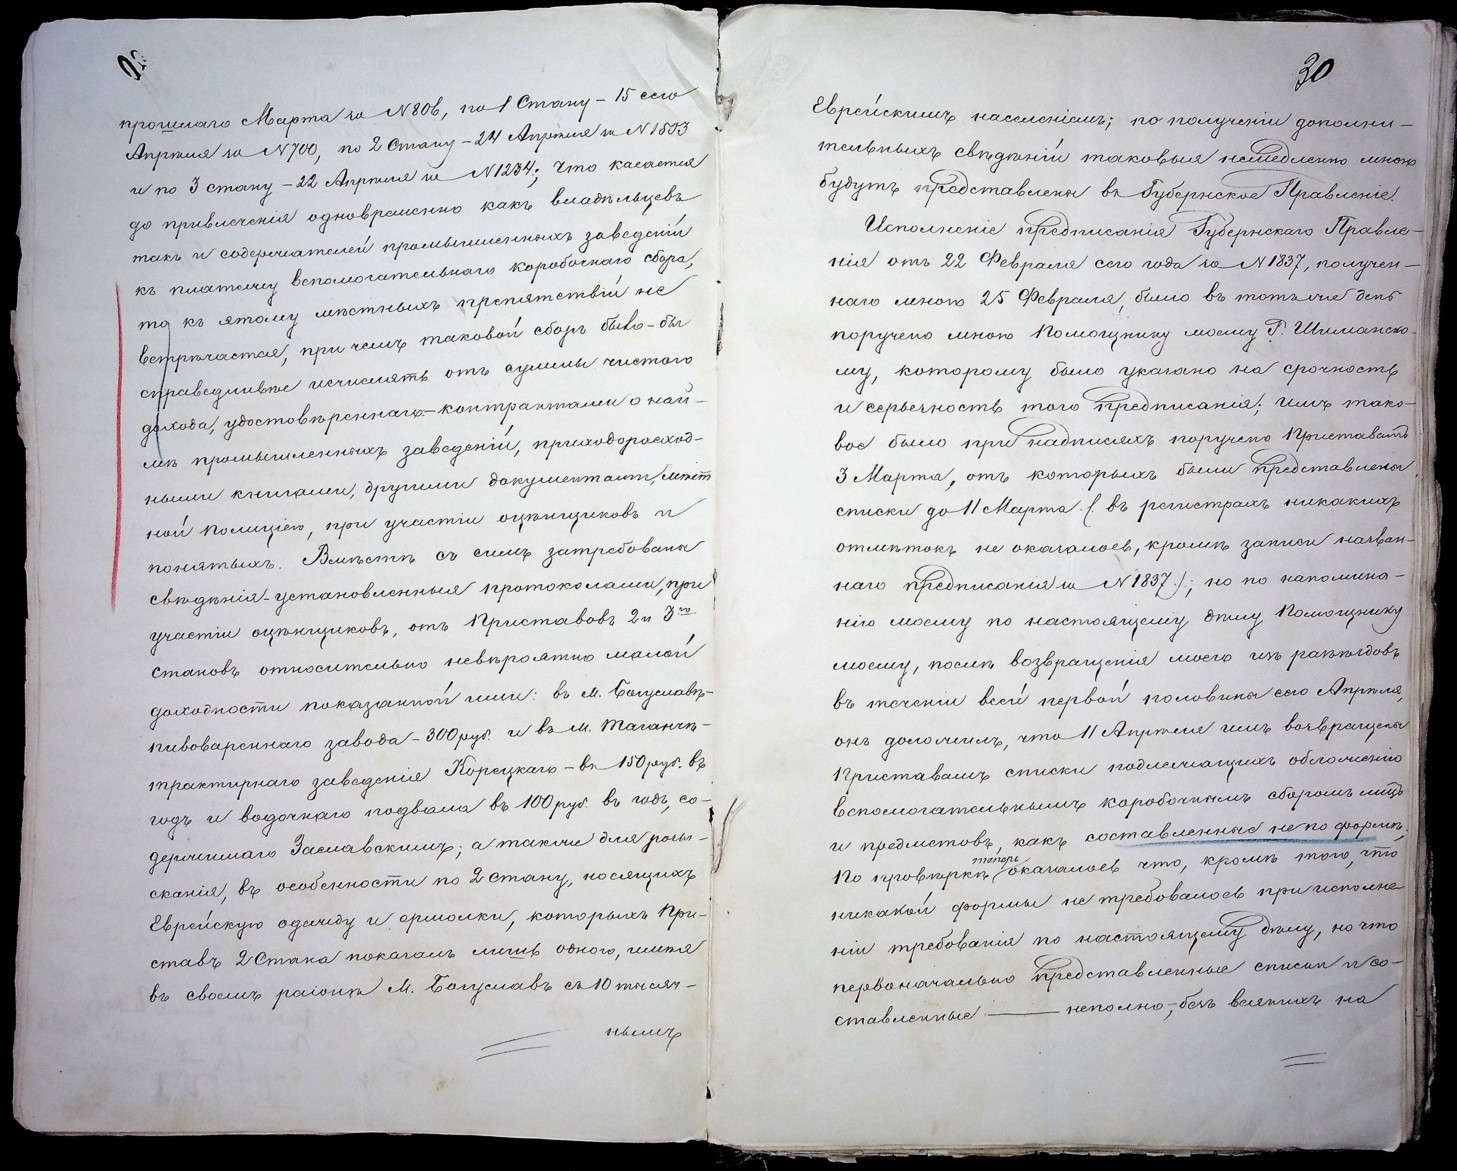 прошлаго Марта за №806, по 1 Стану – 15 сего
Апрѣля за №700, по 2 Стану – 24 Апрѣля за №1593
и по 3 стану – 22 Апрѣля за №1234; Что касается
до привлеченія одновременно какъ владѣльцевъ
такъ и содержателей промышленныхъ заведеній
къ платежу вспомогательнаго коробочнаго сбора,
то къ этому мѣстныхъ препятствій не
встрѣчается, при чемъ таковой сборъ было-бы
справедливѣе исчислять отъ суммы чистаго
дохода, удостовѣреннаго – контрактами о най-
мѣ промышленныхъ заведеній, приходорасход-
ными книгами, другими документами, мѣст
ной Полиціею, при участіи оцѣнщиковъ и
понятыхъ. Вмѣстѣ съ симъ затребованы
свѣдѣнія – установленныя протоколами, при
участіи оцѣнщиковъ, отъ Приставовъ 2 и 3го
становъ относительно невѣроятно малой
доходности показанной ими: въ м. Богуславѣ –
пивовареннаго завода – 300 руб. и въ м. Таганчѣ –
трактирнаго заведенія Корецкаго – въ 150 руб. въ
годъ и водочнаго подвала въ 100 руб. въ годъ, со-
держимаго Заславскимъ; а также для розы-
сканія, въ особенности по 2 стану, носящихъ
Еврейскую одежду и ермолки, которыхъ При-
ставъ 2 Стана показалъ лишь одного, имѣя
въ своемъ раіонѣ М. Богуславъ съ 10 тысяч-
нымъ
30
Еврейскимъ населеніемъ; по полученіи дополни-
тельныхъ свѣдѣній таковыя немедленно мною
будутъ представлены въ Губернское Правленіе.
Исполненіе предписанія Губернскаго Правле-
нія отъ 22 Февраля сего года за №1837, получен-
наго мною 25 Февраля, было въ тотъ же день
поручено мною Помощнику моему Г. Шиманско-
му, которому было указано на срочность
и серьезность того предписанія; имъ тако-
вое было при надписяхъ поручено Приставамъ
3 Марта, отъ которыхъ были представлены
списки до 11 Марта (въ регистрахъ никакихъ
отмѣтокъ не оказалось, кромѣ записи назван-
наго предписанія за №1837); но по напомина-
нію моему по настоящему дѣлу Помощнику
моему, послѣ возвращенія моего изъ разъѣздовъ
въ теченіи всей первой половины сего Апрѣля,
онъ доложилъ, что 11 Апрѣля имъ возвращены
Приставамъ списки подлежащихъ обложенію
вспомогательнымъ коробочнымъ сборомъ лицъ
и предметовъ, какъ составленные не по формѣ.
По провѣркѣ теперь оказалось что, кромѣ того, что
никакой формы не требовалось при исполне
ніи требованія по настоящему дѣлу, но что
первоначально представленные списки и со-
ставленные ——— неполно, безъ всякихъ на